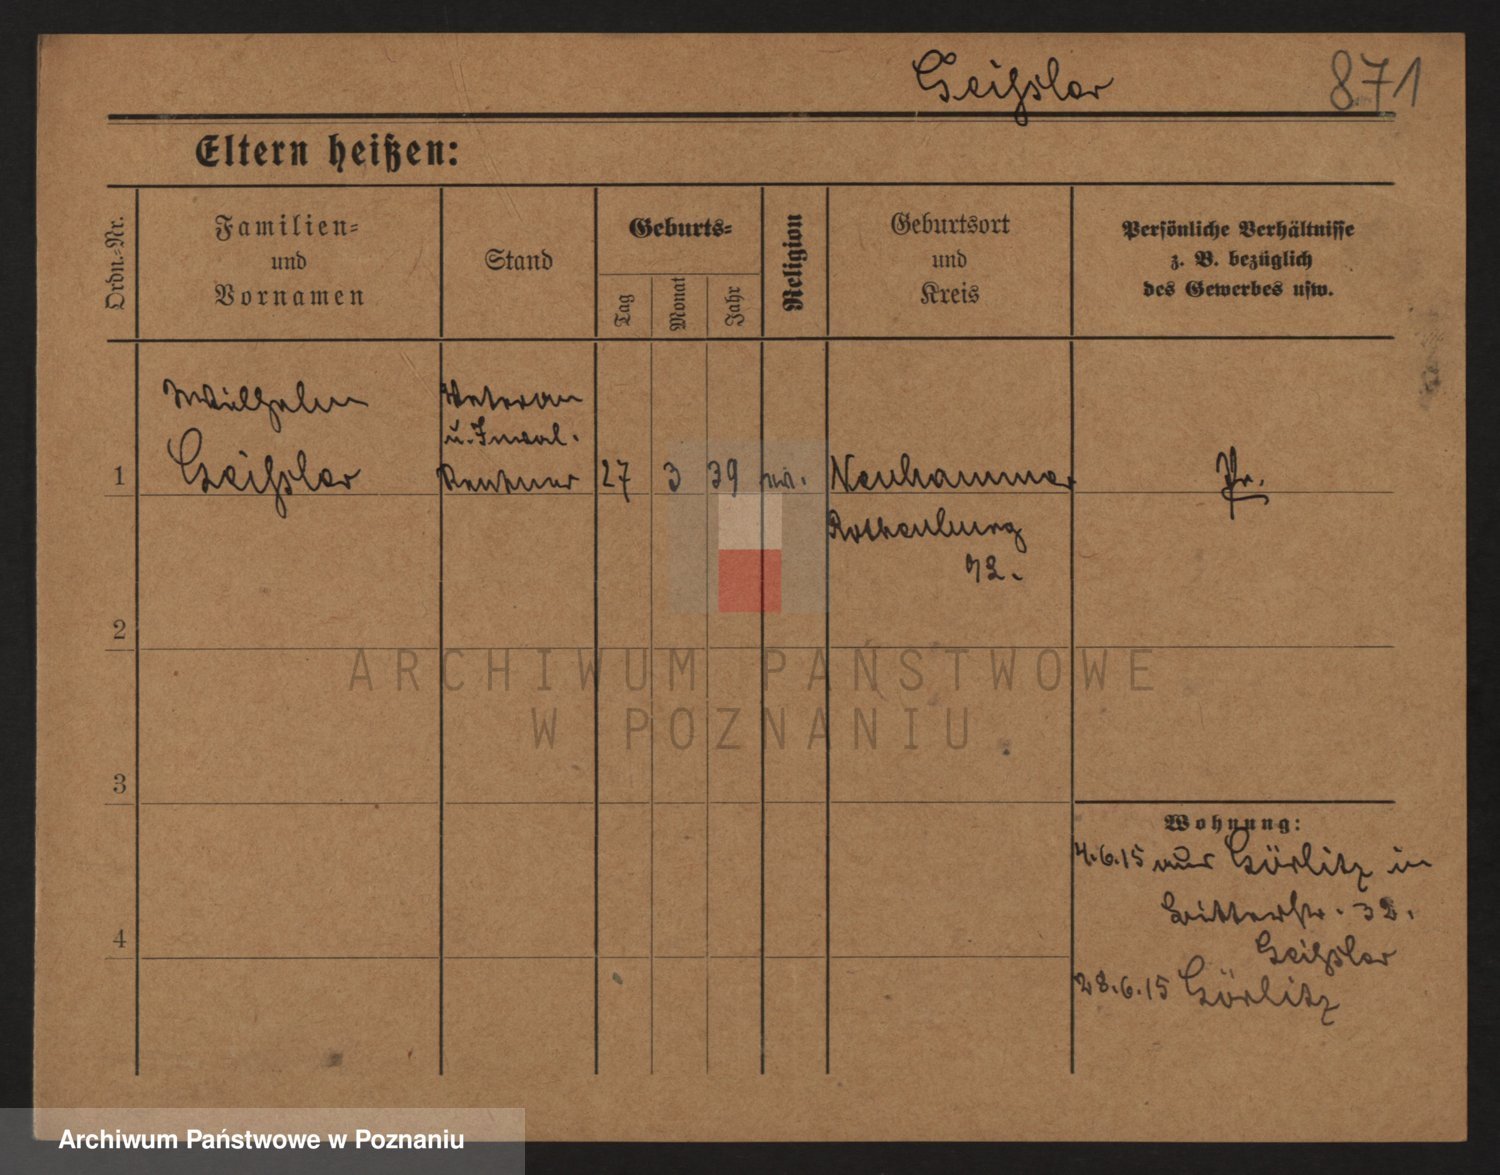 Geißler 871
Eltern heißen:
Ordn.-Nr.
Familien-
und
Vornamen
Stand
Geburts-
Tag
Monat
Jahr
Religion
Geburtsort
und
Kreis
Persönliche Verhältnisse
z. B. bezüglich
des Gewerbes usw.
Wilhelm
Geißler
Veteran
u. Inval.
Rentner
1
27 3 39
Neuhammer
Rothenburg
Pr.
2
ARCHIWUM PAŃSTWOWE
W POZNANIU
3
Wohnung:
4.6.15 aus Görlitz in
32.
Geißler
4
28.6.15 Görlitz
Archiwum Państwowe w Poznaniu